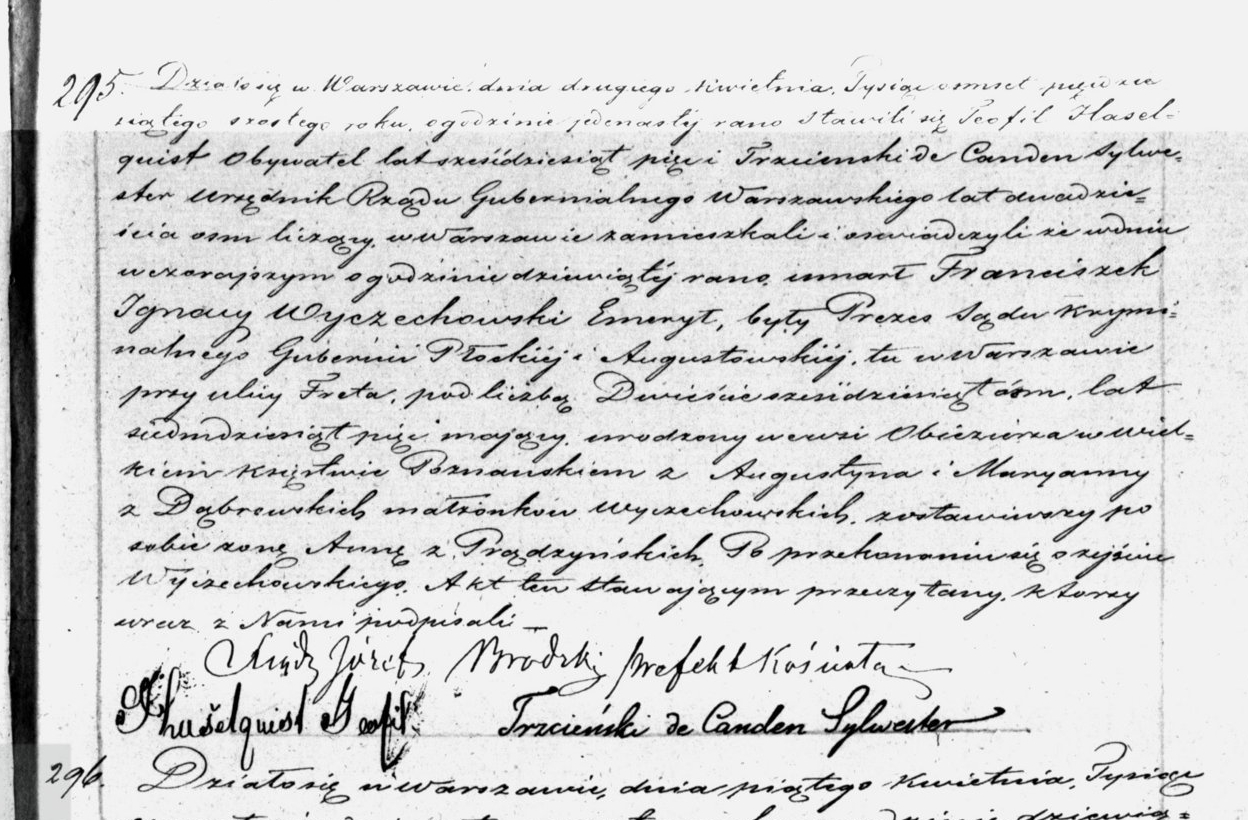 295. Działo się w Warszawie, dnia drugiego Kwietnia, Tysiąc ośmset pięćdzie
siątego szóstego roku, o godzinie jedenastej rano Stawili się Teofil Hasel-
quist Obywatel lat sześdziesiąt pięć i Trzcienski de Canden Sylwe-
ster Urzędnik Rządu Gubernialnego Warszawskiego lat dwadzie-
ścia osm liczący, w Warszawie zamieszkali i oswiadczyli że w dniu
wczorajszym o godzinie dziewiątej rano, umarł Franciszek
Ignacy Wyczechowski Emeryt, były Prezes Sądu Krymi-
nalnego Gubernii Płockiej i Augustowskiej, tu w Warszawie
przy ulicy Freta, pod liczbą Dwieście sześdziesiąt ósm, lat
siedmdziesiąt pięć mający, urodzony we wsi Obiezierza w Wiel-
kiem Księstwie Poznańskiem z Augustyna i Maryanny
z Dąbrowskich małżonków Wyczechowskich, zostawiwszy po
sobie żonę Annę z Prądzyńskich, Po przekonaniu się o zejściu
Wyczechowskiego, Akt ten stawającym przeczytany, którzy
wraz z Nami podpisali —
Ksiądz Józef Brodzki prefekt Kościoła
Haselquist Teofil Trzcieński de Canden Sylwester
296. Działo się w Warszawie, dnia piątego Kwietnia, Tysiąc